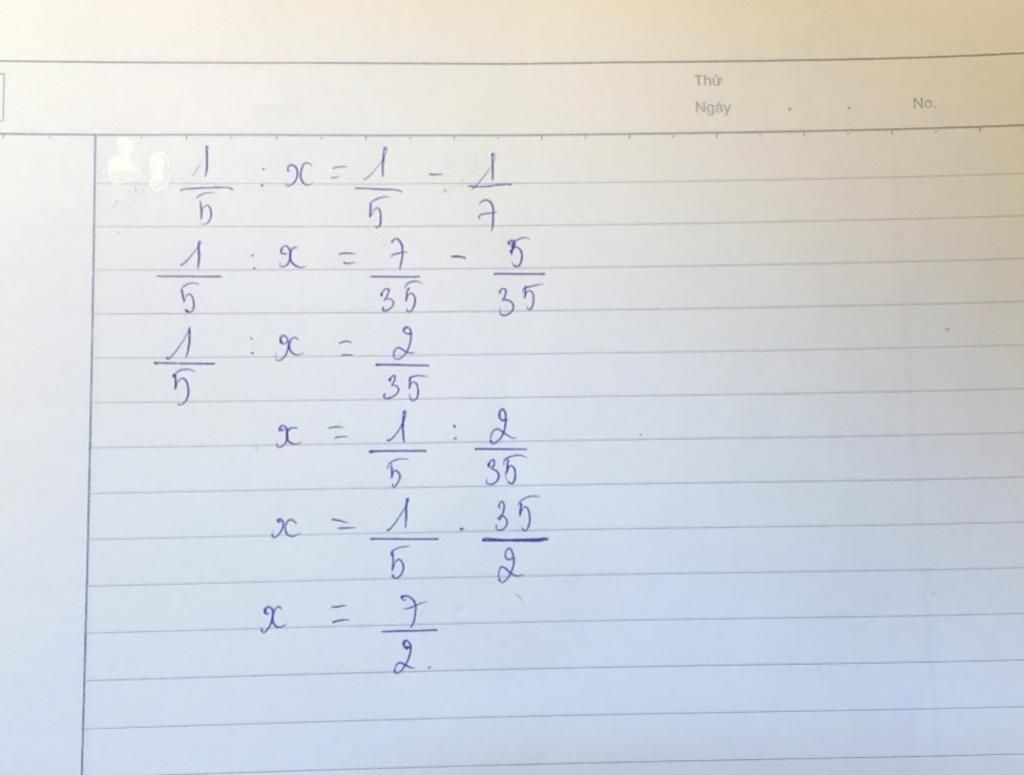 Thứ
Ngày . . No.
1/5 : x = 1/5 - 1/7
1/5 : x = 7/35 - 5/35
1/5 : x = 2/35
x = 1/5 : 2/35
x = 1/5 . 35/2
x = 7/2.